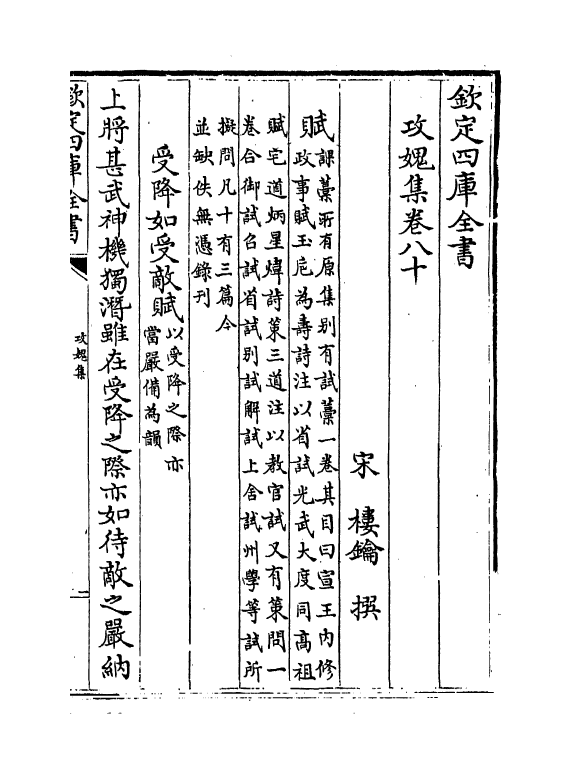 欽定四庫全書
攻媿集卷八十
宋 樓鑰 撰
賦課藁所有原集别有試藁一卷其目曰宣王内修
政事賦玉巵為壽詩注以省試光武大度同高祖
賦宅道炳星煒詩策三道注以教官試又有策問一
卷合御試召試省試别試解試上舍試州學等試所
擬問凡十有三篇今
並缺佚無憑錄刊
受降如受敵賦以受降之際亦
當嚴備為韻
上將甚武神機獨潛雖在受降之際亦如待敵之嚴納
欽定四庫全書
攻媿集
一